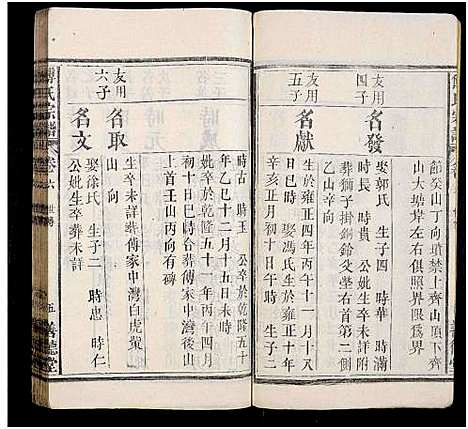 節癸山丁向墳禁上齊山頂下齊
山大塘岸左右俱照界限爲界
友用
四子
名發
娶郭氏 生子四 時華 時滿
時長 時貴 公妣生卒未詳附
葬獅子掛銅鈴父塋右首第二側
乙山辛向
友用
五子
名獻
生於雍正四年丙午十一月十八
日 娶馮氏生於雍正十年
辛亥正月初十日午時 生子二
時古 時玉 公卒於乾隆五十
年乙巳十二月十五日未時
妣卒於乾隆五十一年丙午四月
初十日巳時合葬傅家中灣後山
上首壬山丙向有碑
友用
六子
名取
生卒未詳葬傅家中灣白虎嘴
山 向
名文
娶徐氏 生子二 時忠 時仁
公妣生卒葬未詳
傅氏宗譜
卷六
五 善德堂